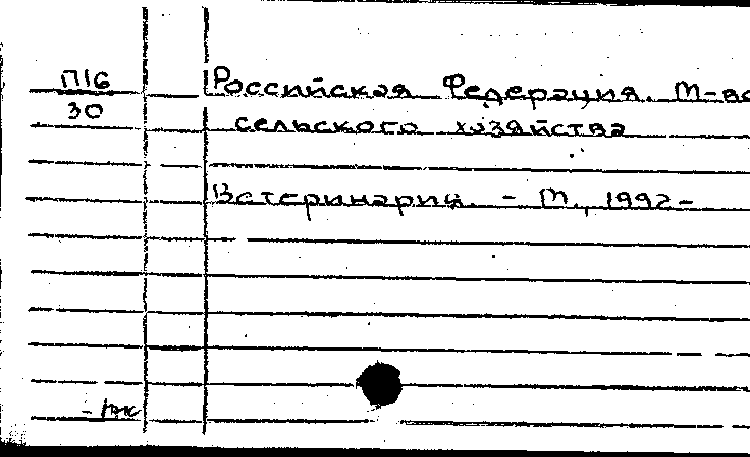 П16
30
Российская Федерация. М-во
сельского хозяйства
Ветеринария. - М., 1992-